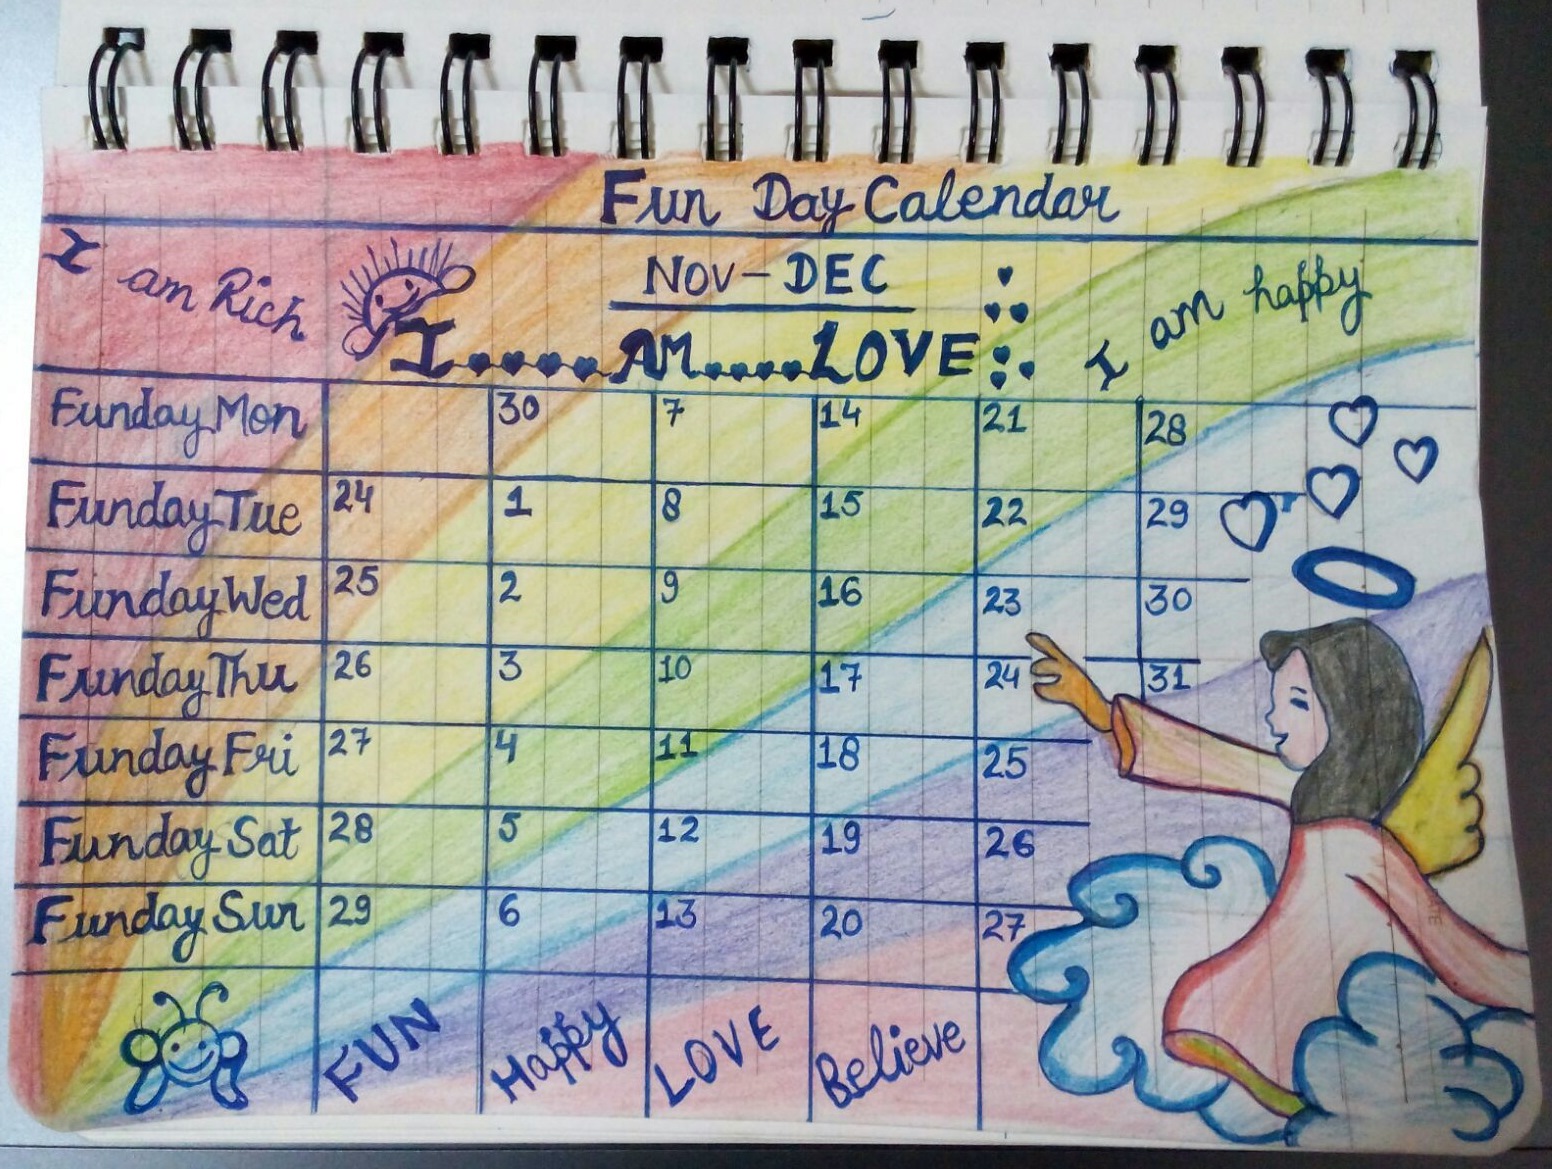 Fun Day Calendar
I am Rich
NOV-DEC
I am happy
I....AM....LOVE
Funday Mon 30 7 14 21 28
Funday Tue 24 1 8 15 22 29
Funday Wed 25 2 9 16 23 30
Funday Thu 26 3 10 17 24 31
Funday Fri 27 4 11 18 25
Funday Sat 28 5 12 19 26
Funday Sun 29 6 13 20 27
FUN Happy LOVE Believe